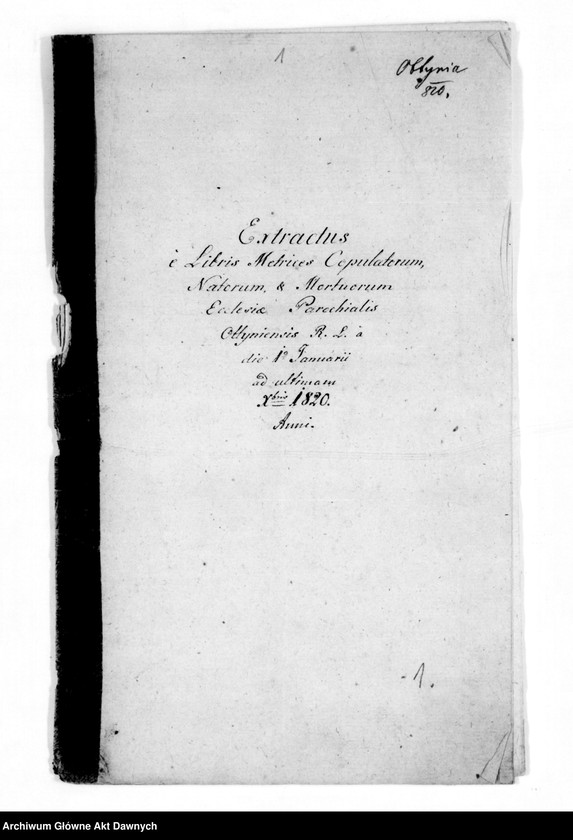 1
Ottynia
820.
Extractus
è Libris Metrices Copulatorum,
Natorum, & Mortuorum
Ecclesiæ Parochialis
Ottyniensis R. L. à
die 1ª Januarii
ad ultimam
Xbris 1820.
Anni.
1.
Archiwum Główne Akt Dawnych